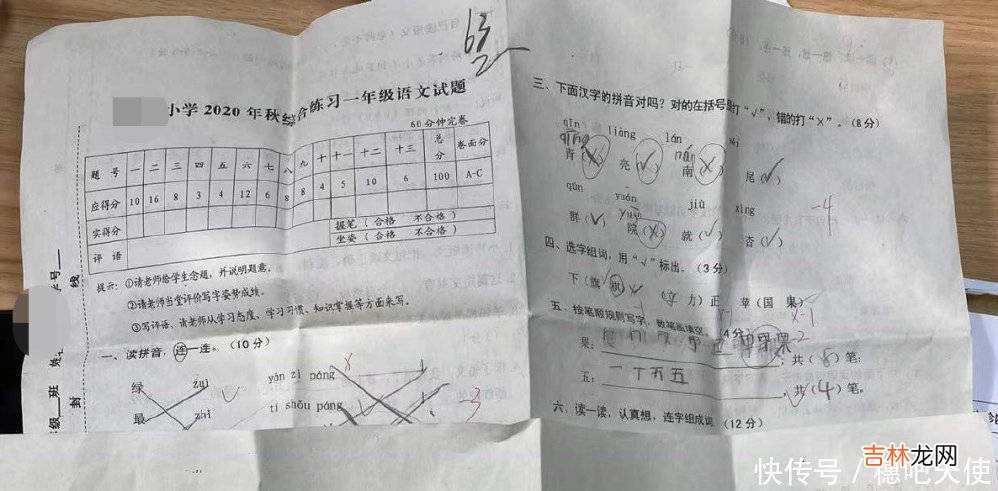 小学 2020 年秋综合练习一年级语文试题
60 分钟完卷
题 号 一 二 三 四 五 六 七 八 九 十 十一 十二 十三 总分 卷面分
应得分 10 16 8 3 4 12 6 8 8 4 5 10 6 100 A-C
实得分 握笔（合格 不合格）
评 语 坐姿（合格 不合格）
提示：①请老师给学生念题，并说明题意。
②请老师当堂评价写字姿势成绩。
③写评语，请老师从学习态度、学习习惯、知识掌握等方面来写。
一、读拼音，连一连。（10 分）
绿 zuì yán zi páng
最 zhī tí shǒu páng
-3
线
封
班
三、下面汉字的拼音对吗？对的在括号里打“√”，错的打“×”。（8 分）
qīn liàng lán
青（×） 亮（√） 南（×） 尾（√）
qún yuán jiù xìng
群（√） 院（×） 就（√） 杏（√）
-4
四、选字组词，用“√”标出。（3 分）
下（旗 棋） （立 力）正 苹（国 果）
五、按笔顺规则写字，数笔画填空。（4 分）
果： 共（8）笔；
五：一 丁 五 五 共（4）笔。
六、读一读，认真想，连字组成词。（12 分）
吉林龙网
快传号 / 穗吧天使